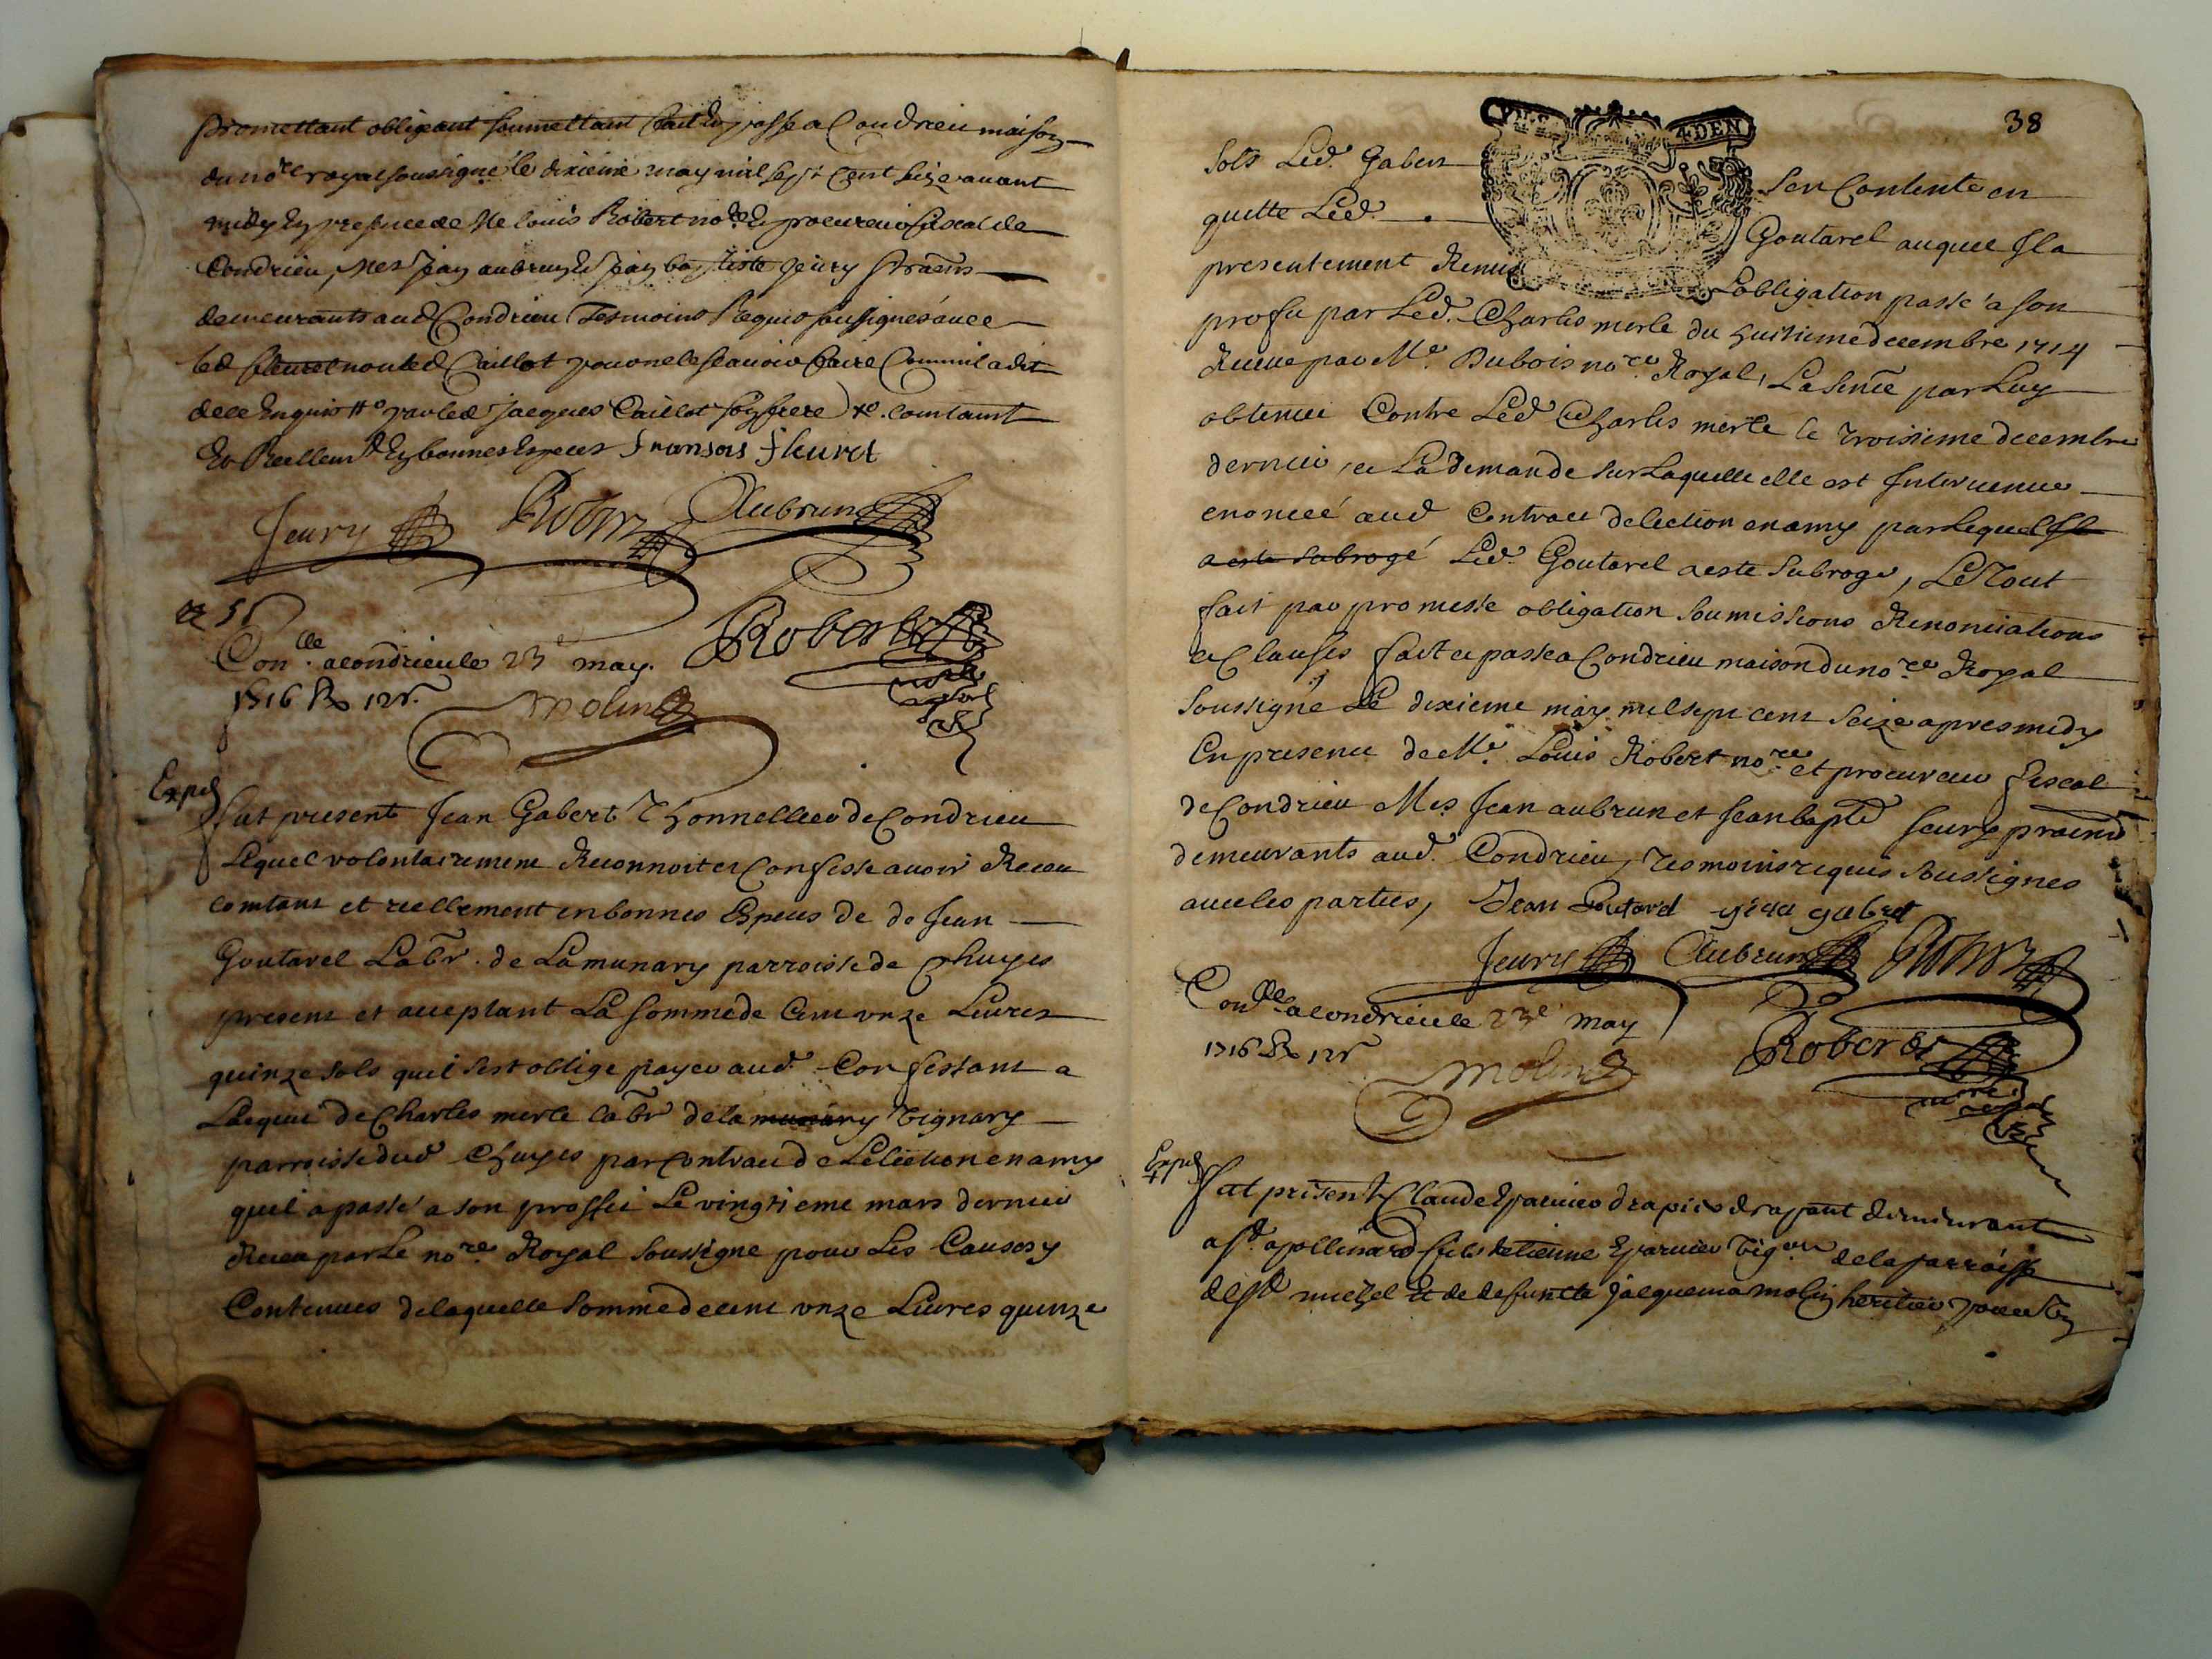 promettant obligeant soumettant fait & passe a Condrieu maison
du no.re royal soussigné le dixieme may mil sept cent seize avant
midy en presence de Me louis Robert no.re & procureur fiscal de
Condrieu, Mes Jean aubrun & Jean baptiste jeury
demeurants aud Condrieu Tesmoins Requis soussignés avec
led fleuret non led Caillot pour ne le scavoir faire Comm il a dit
de ce Enquis par led Jacques Caillot son frere comtant
& Reellement En bonnes Especes fransois fleuret
Jeury Robin Aubrun
Con.lle a condrieu le 23e may. Robert
1716 R 12s. Molin
no.re royal
Exped
fut present Jean Gabert Thonnellier de Condrieu
Lequel volontairement Reconnoit et Confesse avoir Receu
comtant et reellement en bonnes Especes de Jean
Goutarel Labr. de Lamunary parroisse de Chuyes
present et acceptant La somme de Cent onze Livres
quinze sols quil sest oblige payer aud. Confessant a
Lacquit de Charles merle labr de la munary Vignary
parroisse dud Chuyes par Contract de Lelection en amy
quil a passé a son proffit Le vingtieme mars dernier
Receu par Le no.re Royal soussigne pour Les Causes y
Contenues de laquelle somme de cent onze Livres quinze
38
4 DEN
sols Led. Gabert sen Contente en
quitte Led. Goutarel auquel Il a
presentement Remis Lobligation passé a son
profit par Led. Charles merle du huitieme decembre 1714
Receue par Me. Dubois no.re Royal, La sentce par Luy
obtenue Contre Led Charles merle le Troisieme decembre
dernier, et La demande sur Laquelle elle est Intervenue
enoncée aud Contract delection en amy par Lequel Il
a este subrogé Led. Goutarel a este subrogé, Le Tout
fait par promesse obligation soumissions Renonciations
et Clauses fait et passe a Condrieu maison du no.re Royal
soussigné Le dixieme may mil sept cent seize apres midy
En presence de Me. Louis Robert no.re et procureur fiscal
de Condrieu Mes Jean aubrun et Jean bapte Jeury praticiens
demeurants aud. Condrieu, Tesmoins requis soussignes
avec les parties, Jean Goutarel gabert
Jeury Aubrun Robin
Con.lle a condrieu le 23e may Robert
1716 R 12s Molin
no.re royal
Exped
fut present Claude Eparvier drapier drapant demeurant
a st. apollinard fils detienne Eparvier vig.on de la parroisse
de st. michel Et de defuncte Jacquema molin heritier